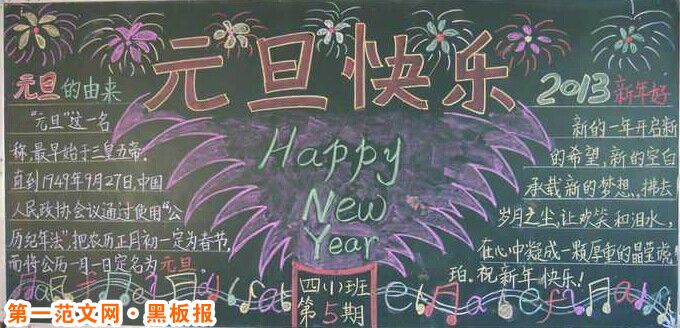 元旦快乐
元旦的由来
"元旦"这一名
称,最早始于三皇五帝.
直到1949年9月27日,中国
人民政协会议通过使用"公
历纪年法",把农历正月初一定为春节,
而将公历一月一日定名为元旦.
Happy
New
Year
四(1)班
第5期
2013新年好
新的一年开启新
的希望,新的空白
承载新的梦想.拂去
岁月之尘,让欢笑和泪水,
在心中凝成一颗厚重的晶莹琥
珀.祝新年快乐!
第一范文网·黑板报